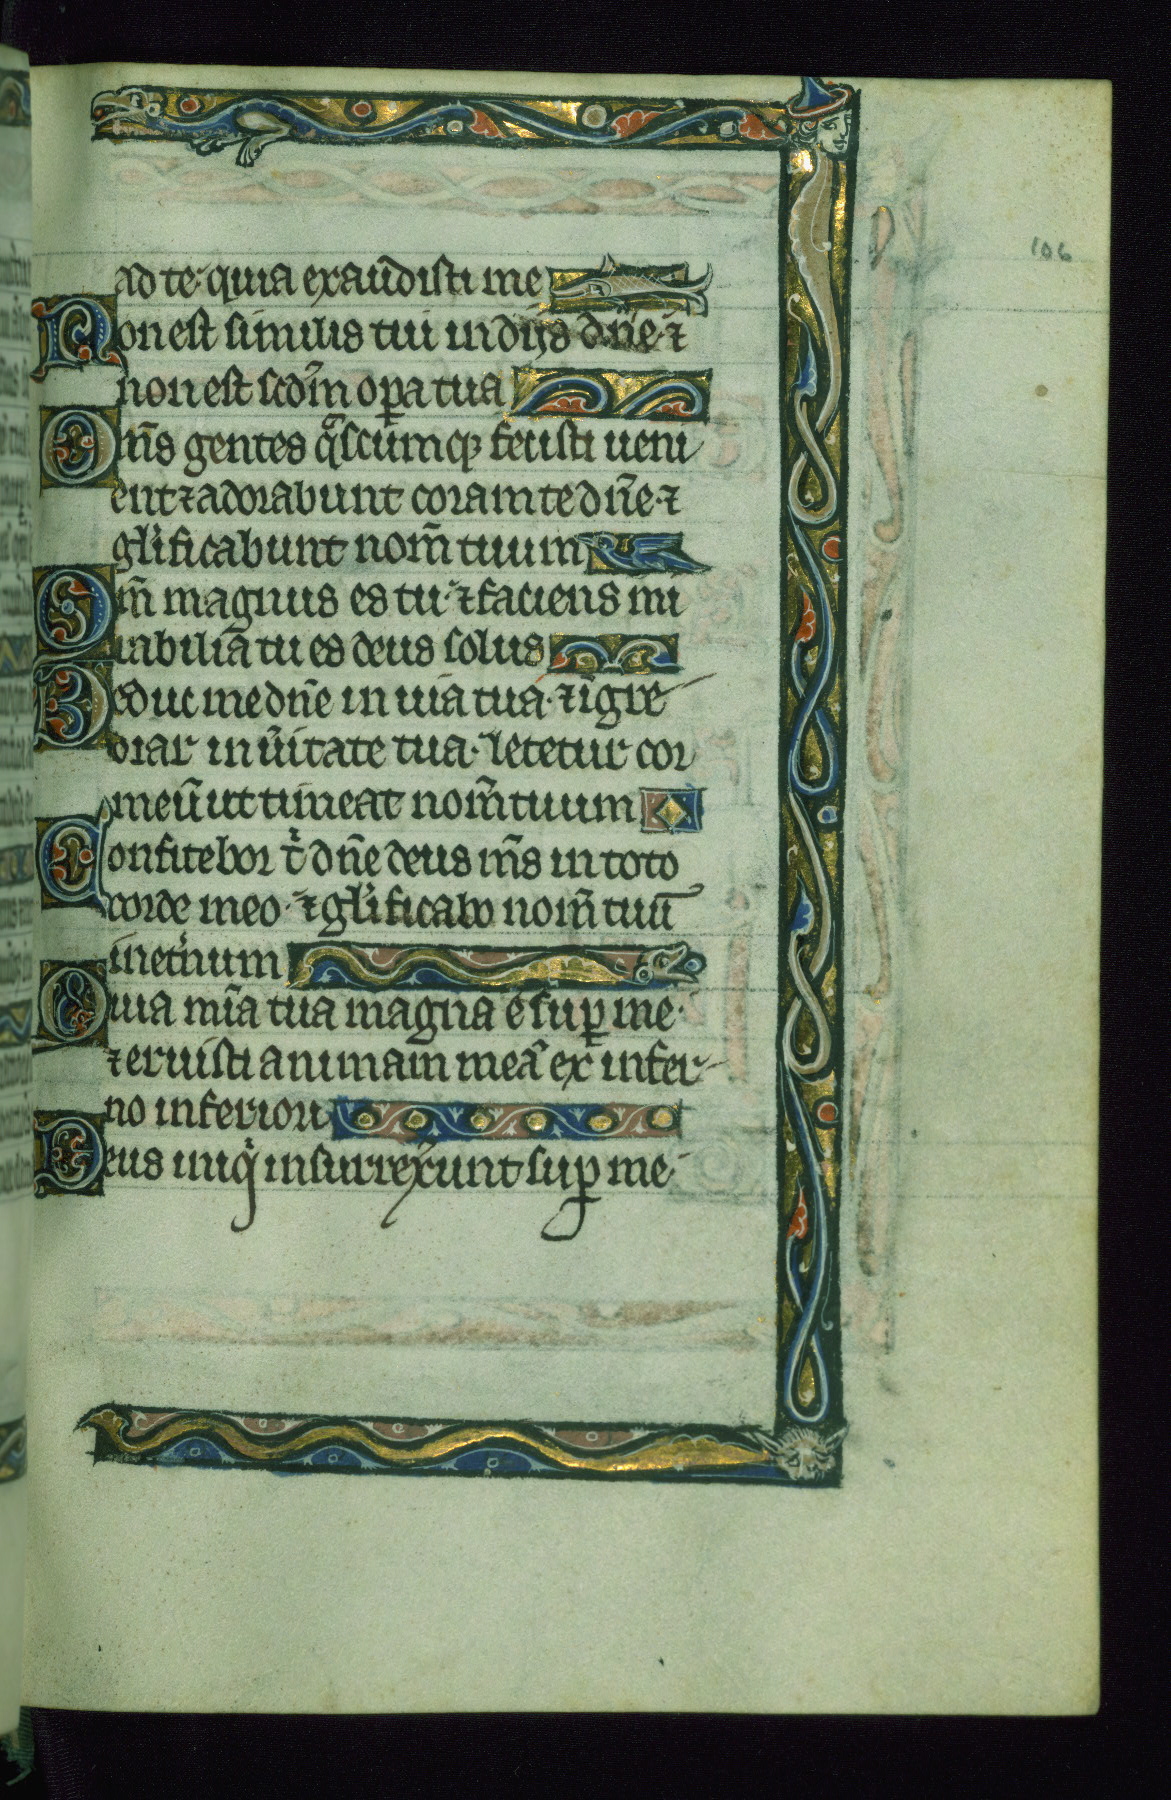 106
ad te· quia exaudisti me
Non est similis tui in dijs dn̄e· ⁊
non est scd̄m oꝑa tua
Om̄s gentes qͣscumqꝫ fecisti ueni
ent ⁊ adorabunt coram te dn̄e· ⁊
glͥificabunt nom̄ tuum
Qm̄ magnus es tu· ⁊ faciens mi
rabilia tu es deus solus
Deduc me dn̄e in uia tua· ⁊ īgre
diar in ūitate tua· letetur cor
meū ut timeat nom̄ tuum
Confitebor tͥ dn̄e deus m̄s in toto
corde meo· ⁊ glͥificabo nom̄ tuū
in et̓num
Quia mīa tua magna ē suꝑ me·
⁊ eruisti animam meā ex infer
no inferiori
Deus iniqͥ insurrexerunt suꝑ me·